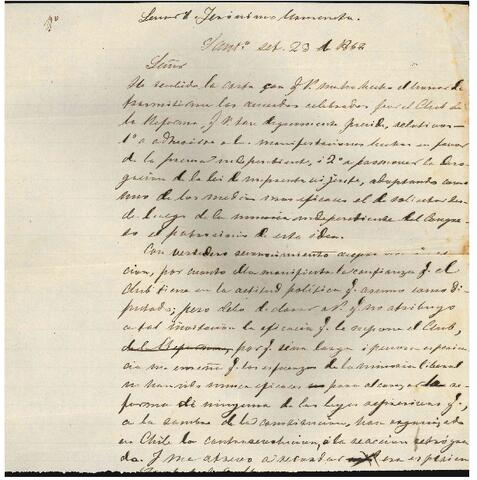 Señor Dn Jerónimo Urmeneta.
Santo set. 23 de 1868
Señor
He recibido la carta con q. V. me ha hecho el honor de
trasmitirme los acuerdos celebrados por el Club de
la Reforma, q. V. tan dignamente preside, relativos
1º a adhesion a las manifestaciones hechas en favor
de la prensa independiente, i 2º a promover la dero-
gacion de la lei de imprenta vijente, adoptando como
uno de los medios mas eficaces el de solicitar des-
de luego de la minoría independiente del Congre-
so el patrocinio de esta idea.
Con verdadero reconocimiento
cion, por cuanto ella manifiesta la confianza q. el
Club tiene en la actitud política q. asumo como di-
putado; pero debo declarar a V. q. no atribuyo
a tal invitacion la eficacia q. le supone el Club,
de la Reforma, por q. una larga i penosa esperien-
cia me enseña q. los esfuerzos de la minoría liberal
no han sido nunca eficaces para alcanzar la re-
forma de ninguna de las leyes q.,
a la sombra de la constitucion, han organizado
en Chile la contrarevolucion, i la reaccion retrógra-
da. I me atrevo a recordar esa esperien